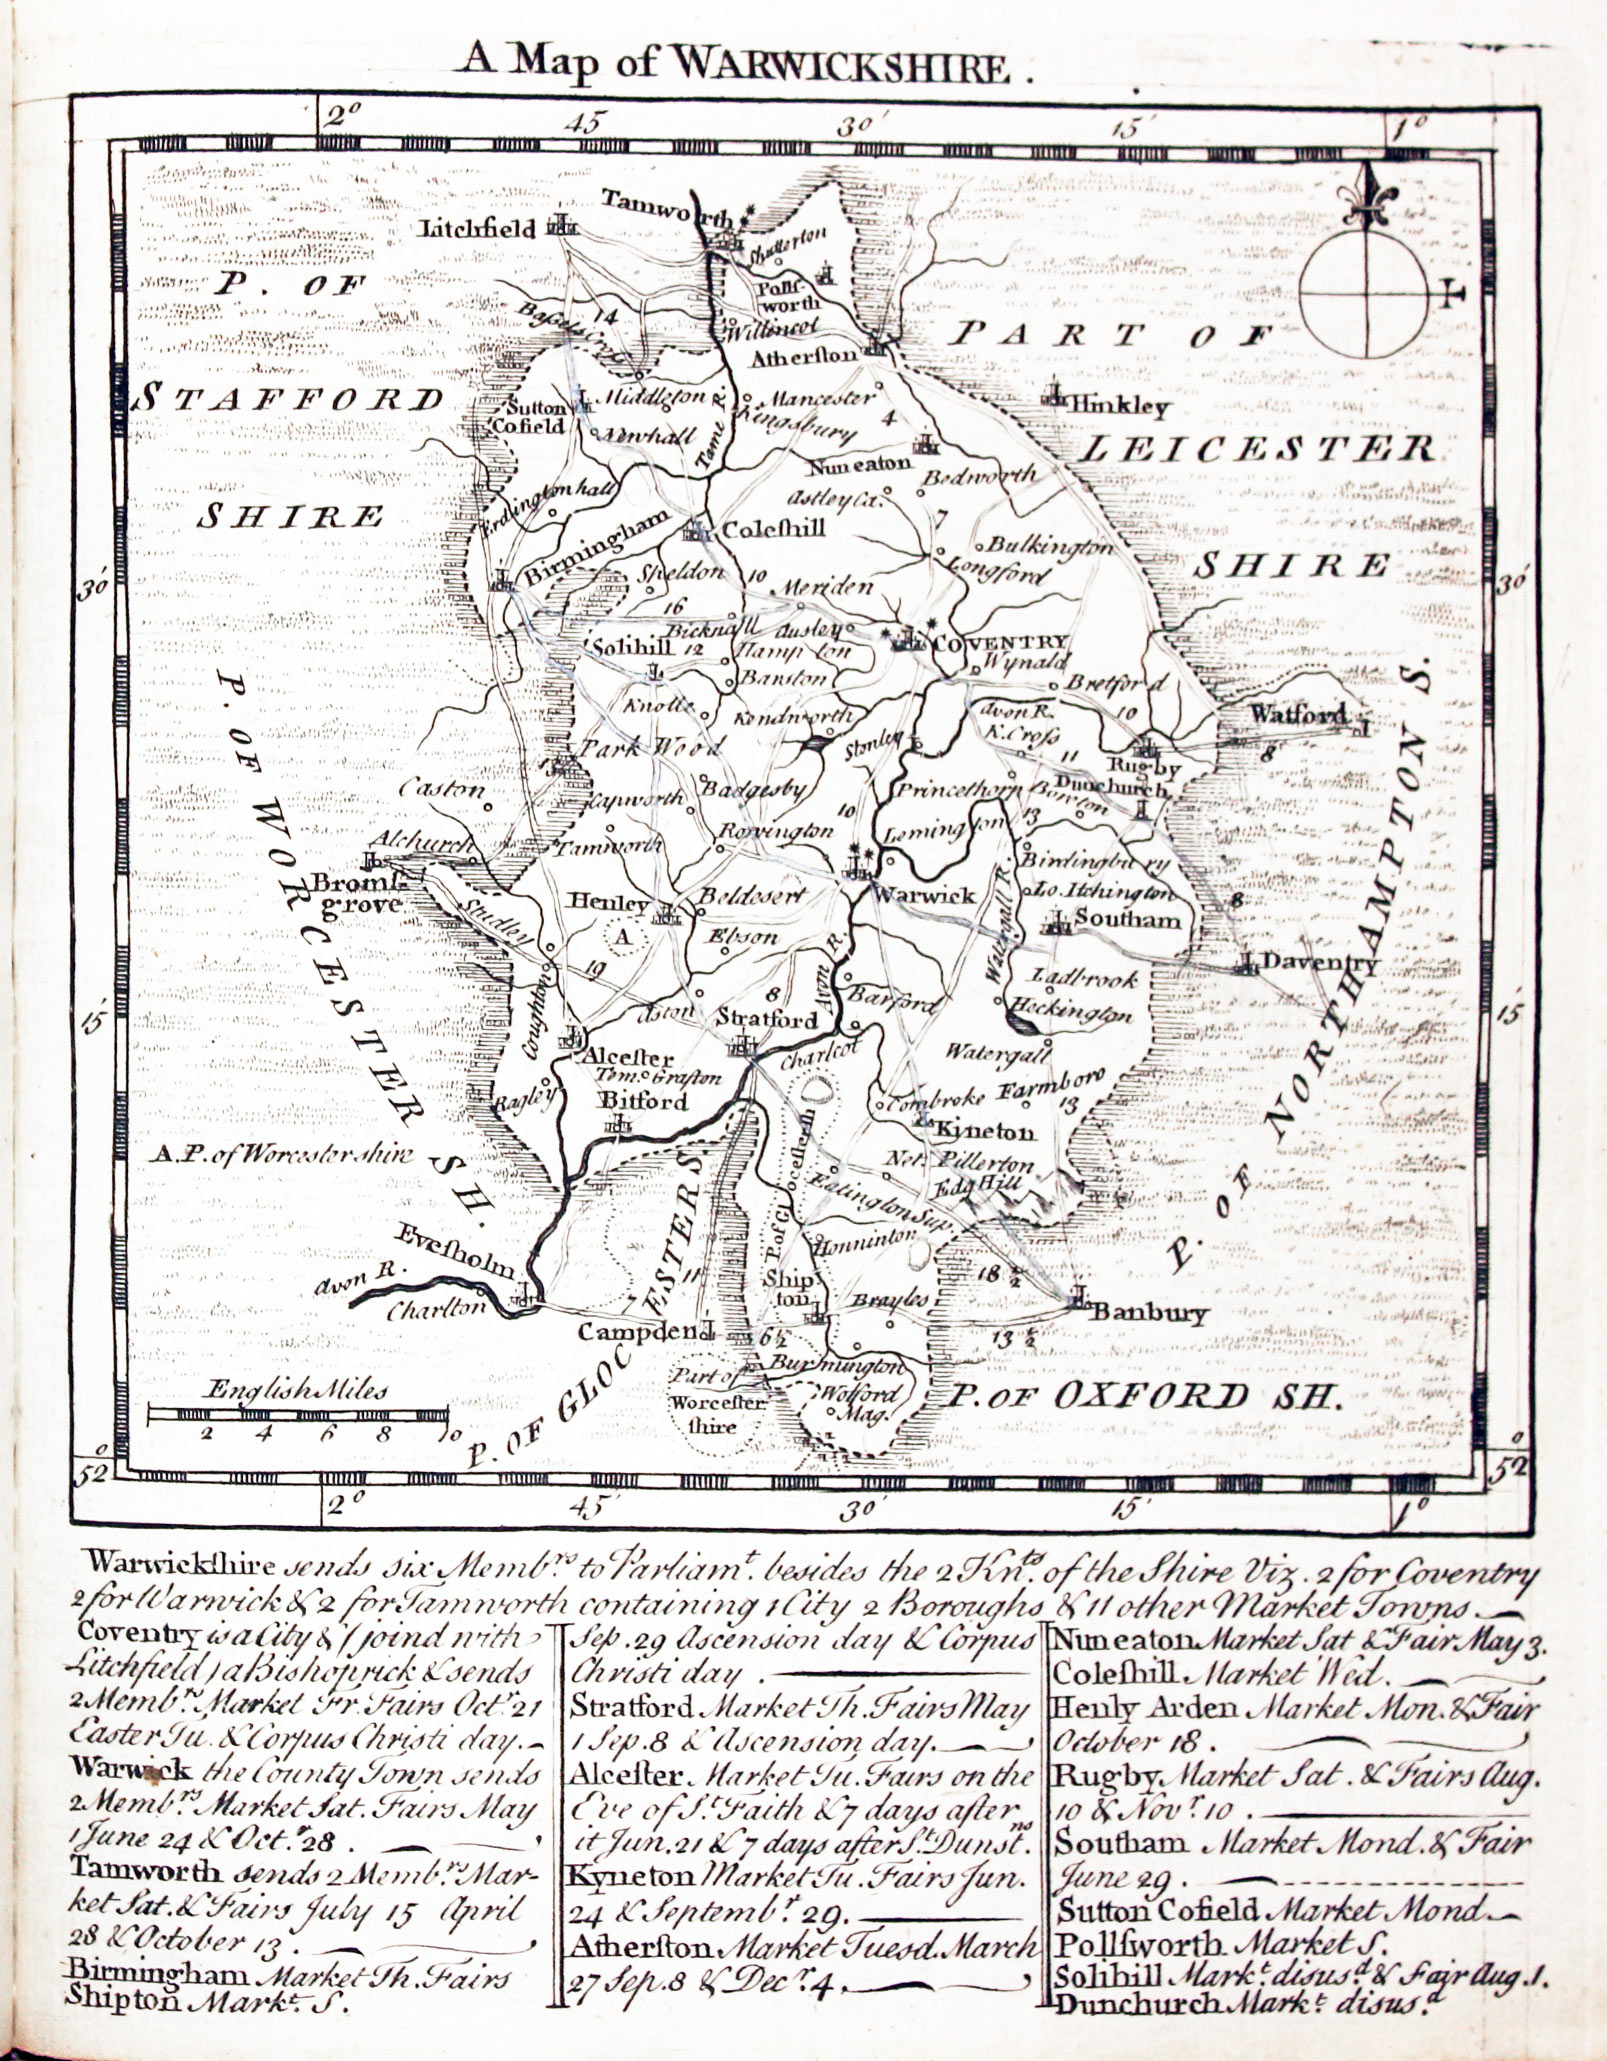 A Map of WARWICKSHIRE.
2° 45 30' 15' 1°
Tamworth
Litchfield
Shutterton
P. OF
Pollſ-
worth
14
Willincot
PART OF
Atherſton
STAFFORD
Middleton
Mancester
Hinkley
Sutton
Cofield
Kingsbury
4
Newhall
Tame R.
LEICESTER
Nuneaton
Bedworth
Erdington hall
Astley Ca.
SHIRE
7
Birmingham
Coleſhill
Bulkington
SHIRE
Longford
Sheldon
10
Meriden
30'
30'
16
Bicknall
Ausley
Solihill
12
Hampton
COVENTRY
Wynald
Banston
Bretford
Knolle
Kendworth
Avon R.
10
Watford
Stonley
K. Croſs
Park Wood
11
8
Rugby
13
Caston
Badgesby
Princethorp
Dunchurch
Capworth
10
Bowton
13
Rowington
Lemington
Alchurch
Tamworth
Birdingbury
Bromſ-
grove
Warwick
Lo. Itchington
Henley
Beldesert
8
Studley
Southam
A
Ebson
Watergall R.
Daventry
19
Avon R.
Ladbrook
8
Barford
Heckington
Coughton
Aston
Stratford
15'
15'
Alceſter
Charlcot
Watergall
Tem. Grafton
Ragley
Bitford
Combroke
Farmboro
13
Kyneton
A. P. of Worcestershire
Net. Pillerton
Edg Hill
Eatington Sup.
P. of Gloceſterſh
Honninton
P. OF WORCESTER SH.
P. OF NORTHAMPTON S.
Eveſholm
18 ½
Avon R.
Charlton
11
Ship
ton
7
Brayles
Banbury
Campden
6½
13 ½
Burmington
Part of
Worceſter
ſhire
Wolford
Mag.
P. OF OXFORD SH.
P. OF GLOCESTERS
English Miles
2 4 6 8 10
52° 52°
2° 45' 30' 15' 1°
Warwickſhire sends six Memb.rs to Parliam.t besides the 2 Kn.ts of the Shire Viz. 2 for Coventry
2 for Warwick & 2 for Tamworth containing 1 City 2 Boroughs & 11 other Market Towns.
Coventry is a City & (joind with
Litchfield) a Bishoprick & sends
2 Memb.rs Market Fr. Fairs Oct.r 21
Easter Tu. & Corpus Christi day.
Warwick the County Town sends
2 Memb.rs Market Sat. Fairs May
1 June 24 & Oct.r 28.
Tamworth sends 2 Memb.rs Mar-
ket Sat. & Fairs July 15 April
28 & October 13.
Birmingham Market Th. Fairs
Shipton Mark.t S.
Sep. 29 Ascension day & Corpus
Christi day.
Stratford Market Th. Fairs May
1 Sep. 8 & Ascension day.
Alceſter Market Tu. Fairs on the
Eve of S.t Faith & 7 days after
it Jun. 21 & 7 days after S.t Dunst.ns
Kyneton Market Tu. Fairs Jun.
24 & Septemb.r 29.
Atherſton Market Tuesd. March
27 Sep. 8 & Dec.r 4.
Nuneaton Market Sat & Fair May 3.
Coleſhill Market Wed.
Henly Arden Market Mon. & Fair
October 18.
Rugby Market Sat. & Fairs Aug.
10 & Nov.r 10.
Southam Market Mond. & Fair
June 29.
Sutton Cofield Market Mond.
Pollſworth Market S.
Solihill Mark.t disus.d & Fair Aug. 1.
Dunchurch Mark.t disus.d